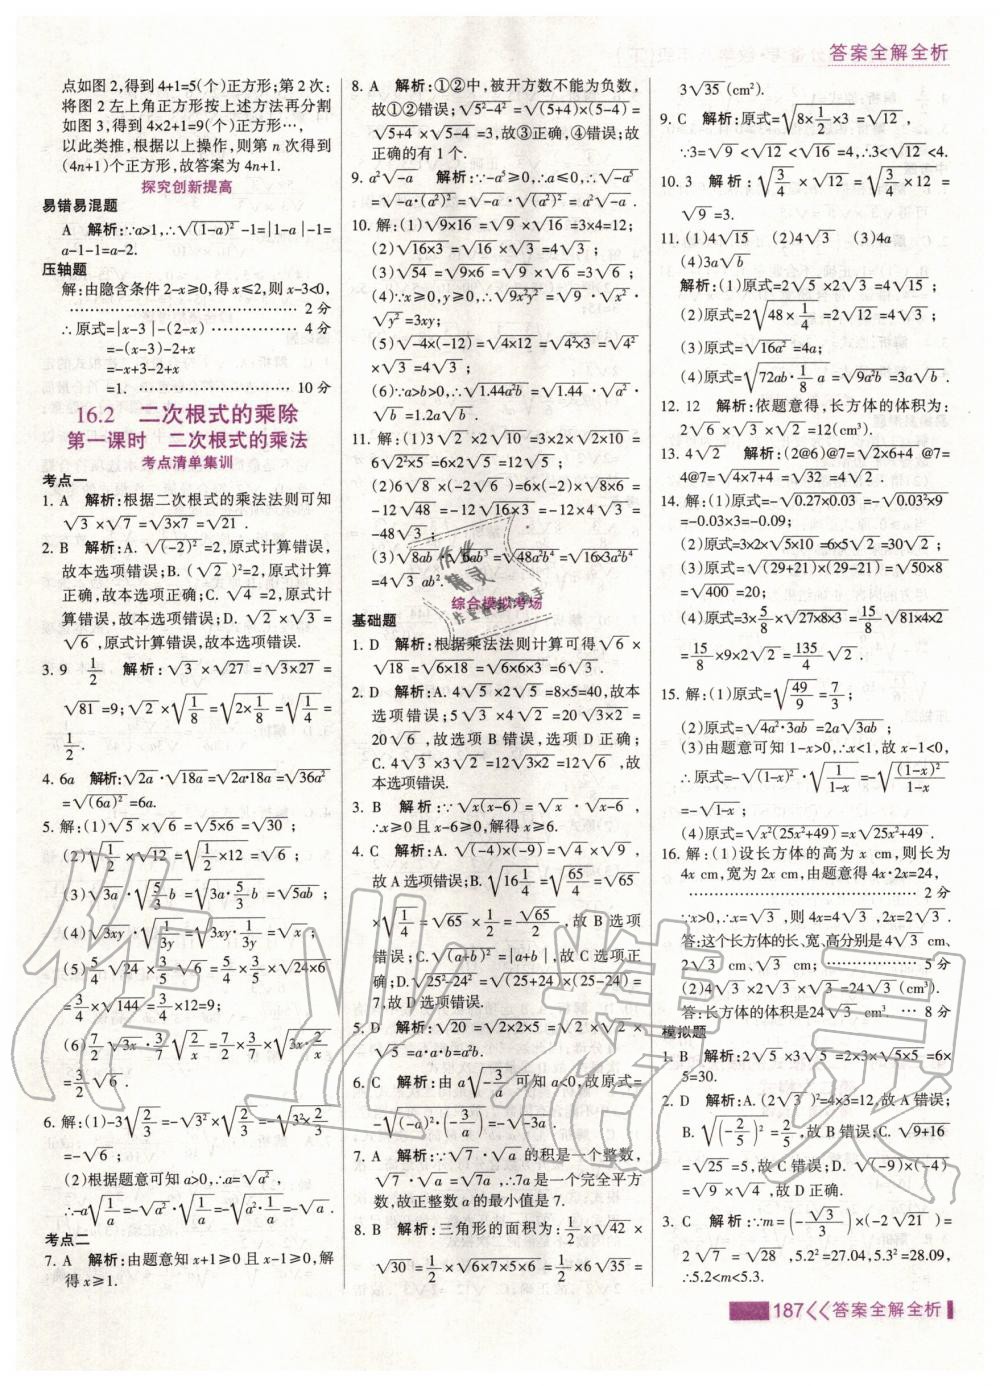 答案全解全析
点如图2,得到4+1=5(个)正方形;第2次:
将图2左上角正方形按上述方法再分割
如图3,得到4×2+1=9(个)正方形…,
以此类推,根据以上操作,则第n次得到
(4n+1)个正方形,故答案为4n+1.
探究创新提高
易错易混题
A 解析:∵a>1,∴√(1-a)²-1=|1-a|-1=
a-1-1=a-2.
压轴题
解:由隐含条件2-x≥0,得x≤2,则x-3<0,
…………………………………… 2分
∴原式=|x-3|-(2-x) …………… 4分
=-(x-3)-2+x
=-x+3-2+x
=1. …………………… 10分
16.2 二次根式的乘除
第一课时 二次根式的乘法
考点清单集训
考点一
1. A 解析:根据二次根式的乘法法则可知
√3×√7=√3×7=√21.
2. B 解析:A.√(-2)²=2,原式计算错误,
故本选项错误;B.(√2)²=2,原式计算
正确,故本选项正确;C.√4=2,原式计
算错误,故本选项错误;D.√2×√3=
√6,原式计算错误,故本选项错误.
3. 9 1/2 解析:√3×√27=√3×27=
√81=9;√2×√(1/8)=√(2×1/8)=√(1/4)=
1/2.
4. 6a 解析:√2a·√18a=√2a·18a=√36a²
=√(6a)²=6a.
5. 解:(1)√5×√6=√5×6=√30;
(2)√(1/2)×√12=√(1/2×12)=√6;
(3)√3a·√(5/3 b)=√(3a·5/3 b)=√5ab;
(4)√3xy·√(1/3y)=√(3xy·1/3y)=√x;
(5)5/4√24×3/5√6=5/4×3/5×√24×6
=3/4×√144=3/4×12=9;
(6)7/2√3x·3/7√(2/x)=7/2×3/7×√(3x·2/x)
=3/2√6.
6. 解:(1)-3√(2/3)=-√3²×√(2/3)=-√(3²×2/3)
=-√6;
(2)根据题意可知a>0,∴a=√a²,
∴-a√(1/a)=-√a²·√(1/a)=-√(a²·1/a)=-√a.
考点二
7. A 解析:由题意知x+1≥0且x-1≥0,解
得x≥1.
8. A 解析:①②中,被开方数不能为负数,
故①②错误;√5²-4²=√(5+4)×(5-4)=
√5+4×√5-4=3,故③正确,④错误;故
正确的有1个.
9. a²√-a 解析:∵-a⁵≥0,∴a≤0,∴√-a⁵
=√-a·(a²)²=√-a·√(a²)²=a²√-a.
10. 解:(1)√9×16=√9×√16=3×4=12;
(2)√16×3=√16×√3=4√3;
(3)√54=√9×6=√9×√6=3√6;
(4)∵x≥0,y≥0,∴√9x²y²=√9·√x²·
√y²=3xy;
(5)√-4×(-12)=√4×12=√4×4×3=√4²
×√3=4√3;
(6)∵a>b>0,∴√1.44a²b=√1.44·√a²·
√b=1.2a√b.
11. 解:(1)3√2×2√10=3×2×√2×10=
6√2²×5=6×2√5=12√5;
(2)6√8×(-2√6)=6×(-2)×√8×6=
-12√48=-12√16×3=-12×4√3=
-48√3;
(3)√8ab×√6ab³=√48a²b⁴=√16×3a²b⁴
=4√3ab².
综合模拟考场
基础题
1. D 解析:根据乘法法则计算可得√6×
√18=√6×18=√6×6×3=6√3.
2. D 解析:A.4√5×2√5=8×5=40,故本
选项错误;5√3×4√2=20√3×2=
20√6,故选项B错误,选项D正确;
C.4√3×3√2=12√3×2=12√6,故
本选项错误.
3. B 解析:∵√x(x-6)=√x·√x-6,
∴x≥0且x-6≥0,解得x≥6.
4. C 解析:A.√(-4)×(-9)=√4×√9,
故A选项错误;B.√(16 1/4)=√(65/4)=√65
×√(1/4)=√65×1/2=√65/2,故B选项
错误;C.√(a+b)²=|a+b|,故C选项正
确;D.√25²-24²=√(25+24)×(25-24)=
7,故D选项错误.
5. D 解析:√20=√2×2×5=√2×√2×
√5=a·a·b=a²b.
6. C 解析:由a√(-3/a)可知a<0,故原式=
-√(-a)²·(-3/a)=-√-3a.
7. A 解析:∵√7·√a的积是一个整数,
√7·√a=√7a,∴7a是一个完全平方
数,故正整数a的最小值是7.
8. B 解析:三角形的面积为:1/2×√42×
√30=1/2×√6×7×5×6=1/2×6√35=
3√35(cm²).
9. C 解析:原式=√(8×1/2×3)=√12,
∵3=√9<√12<√16=4,∴3<√12<4.
10. 3 解析:√(3/4)×√12=√(3/4×12)=
√9=3.
11. (1)4√15 (2)4√3 (3)4a
(4)3a√b
解析:(1)原式=2√5×2√3=4√15;
(2)原式=2√(48×1/4)=2√12=4√3;
(3)原式=√16a²=4a;
(4)原式=√(72ab·1/8 a)=√9a²b=3a√b.
12. 12 解析:依题意得,长方体的体积为:
2√6×√3×√2=12(cm³).
13. 4√2 解析:(2@6)@7=√2×6+4@7=
4@7=√4×7+4=√32=4√2.
14. 解:(1)原式=-√0.27×0.03=-√0.03²×9
=-0.03×3=-0.09;
(2)原式=2×3×√5×10=6×5√2=30√2;
(3)原式=√(29+21)×(29-21)=√50×8
=√400=20;
(4)原式=3×5/8×√27×8×3=15/8√81×4×2
=15/8×9×2√2=135/4√2.
15. 解:(1)原式=√(49/9)=7/3;
(2)原式=√4a²·3ab=2a√3ab;
(3)由题意可知1-x>0,∴x<1,故x-1<0,
∴原式=-√(1-x)²·√(1/1-x)=-√((1-x)²/1-x)
=-√1-x;
(4)原式=√x²(25x²+49)=x√25x²+49.
16. 解:(1)设长方体的高为x cm,则长为
4x cm,宽为2x cm,由题意得4x·2x=24,
…………………………………… 2分
∵x>0,∴x=√3,则4x=4√3,2x=2√3.
答:这个长方体的长、宽、高分别是4√3 cm、
2√3 cm、√3 cm. …………… 5分
(2)4√3×2√3×√3=24√3(cm³).
答:长方体的体积是24√3 cm³. … 8分
模拟题
1. B 解析:2√5×3√5=2×3×√5×5=6×
5=30.
2. D 解析:A.(2√3)²=4×3=12,故A错误;
B.√(-2/5)²=2/5,故B错误;C.√9+16
=√25=5,故C错误;D.√(-9)×(-4)
=√9×√4,故D正确.
3. C 解析:∵m=(-√3/3)×(-2√21)=
2√7=√28,5.2²=27.04,5.3²=28.09,
∴5.2<m<5.3.
187<<答案全解全析
作业精灵